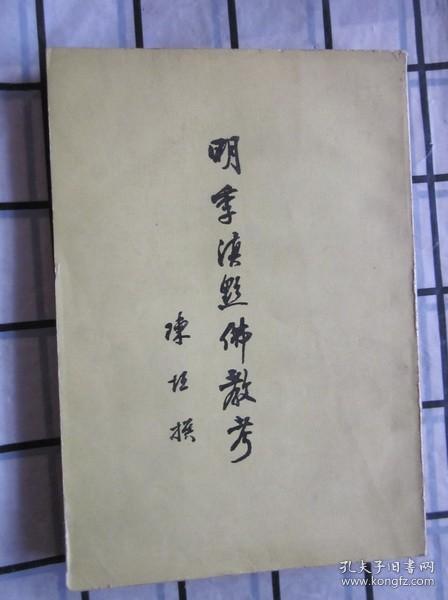 明季滇黔佛教考
陳垣撰
孔夫子旧书网
www.kongfz.com